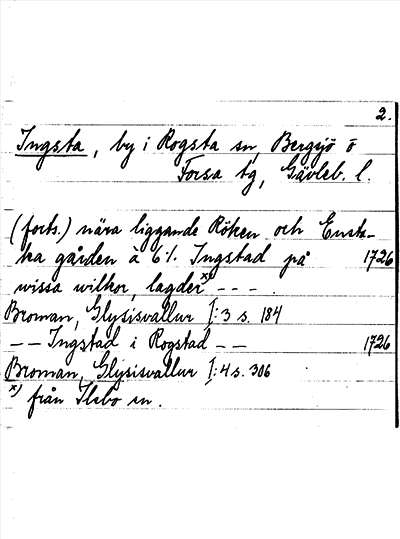 2.
Ingsta, by i Rogsta sn, Bergsjö o
Forsa tg, Gävleb. l.
(forts.) nära liggande Röken och Ensta-
ka gården à 6/. Ingstad på 1726
wissa wilkor, lagder x) - - - .
Broman, Glysisvallur I:3 s. 184
- - Ingstad i Rogstad - - 1726
Broman, Glysisvallur I:4 s. 306
x) från Ilsbo sn.